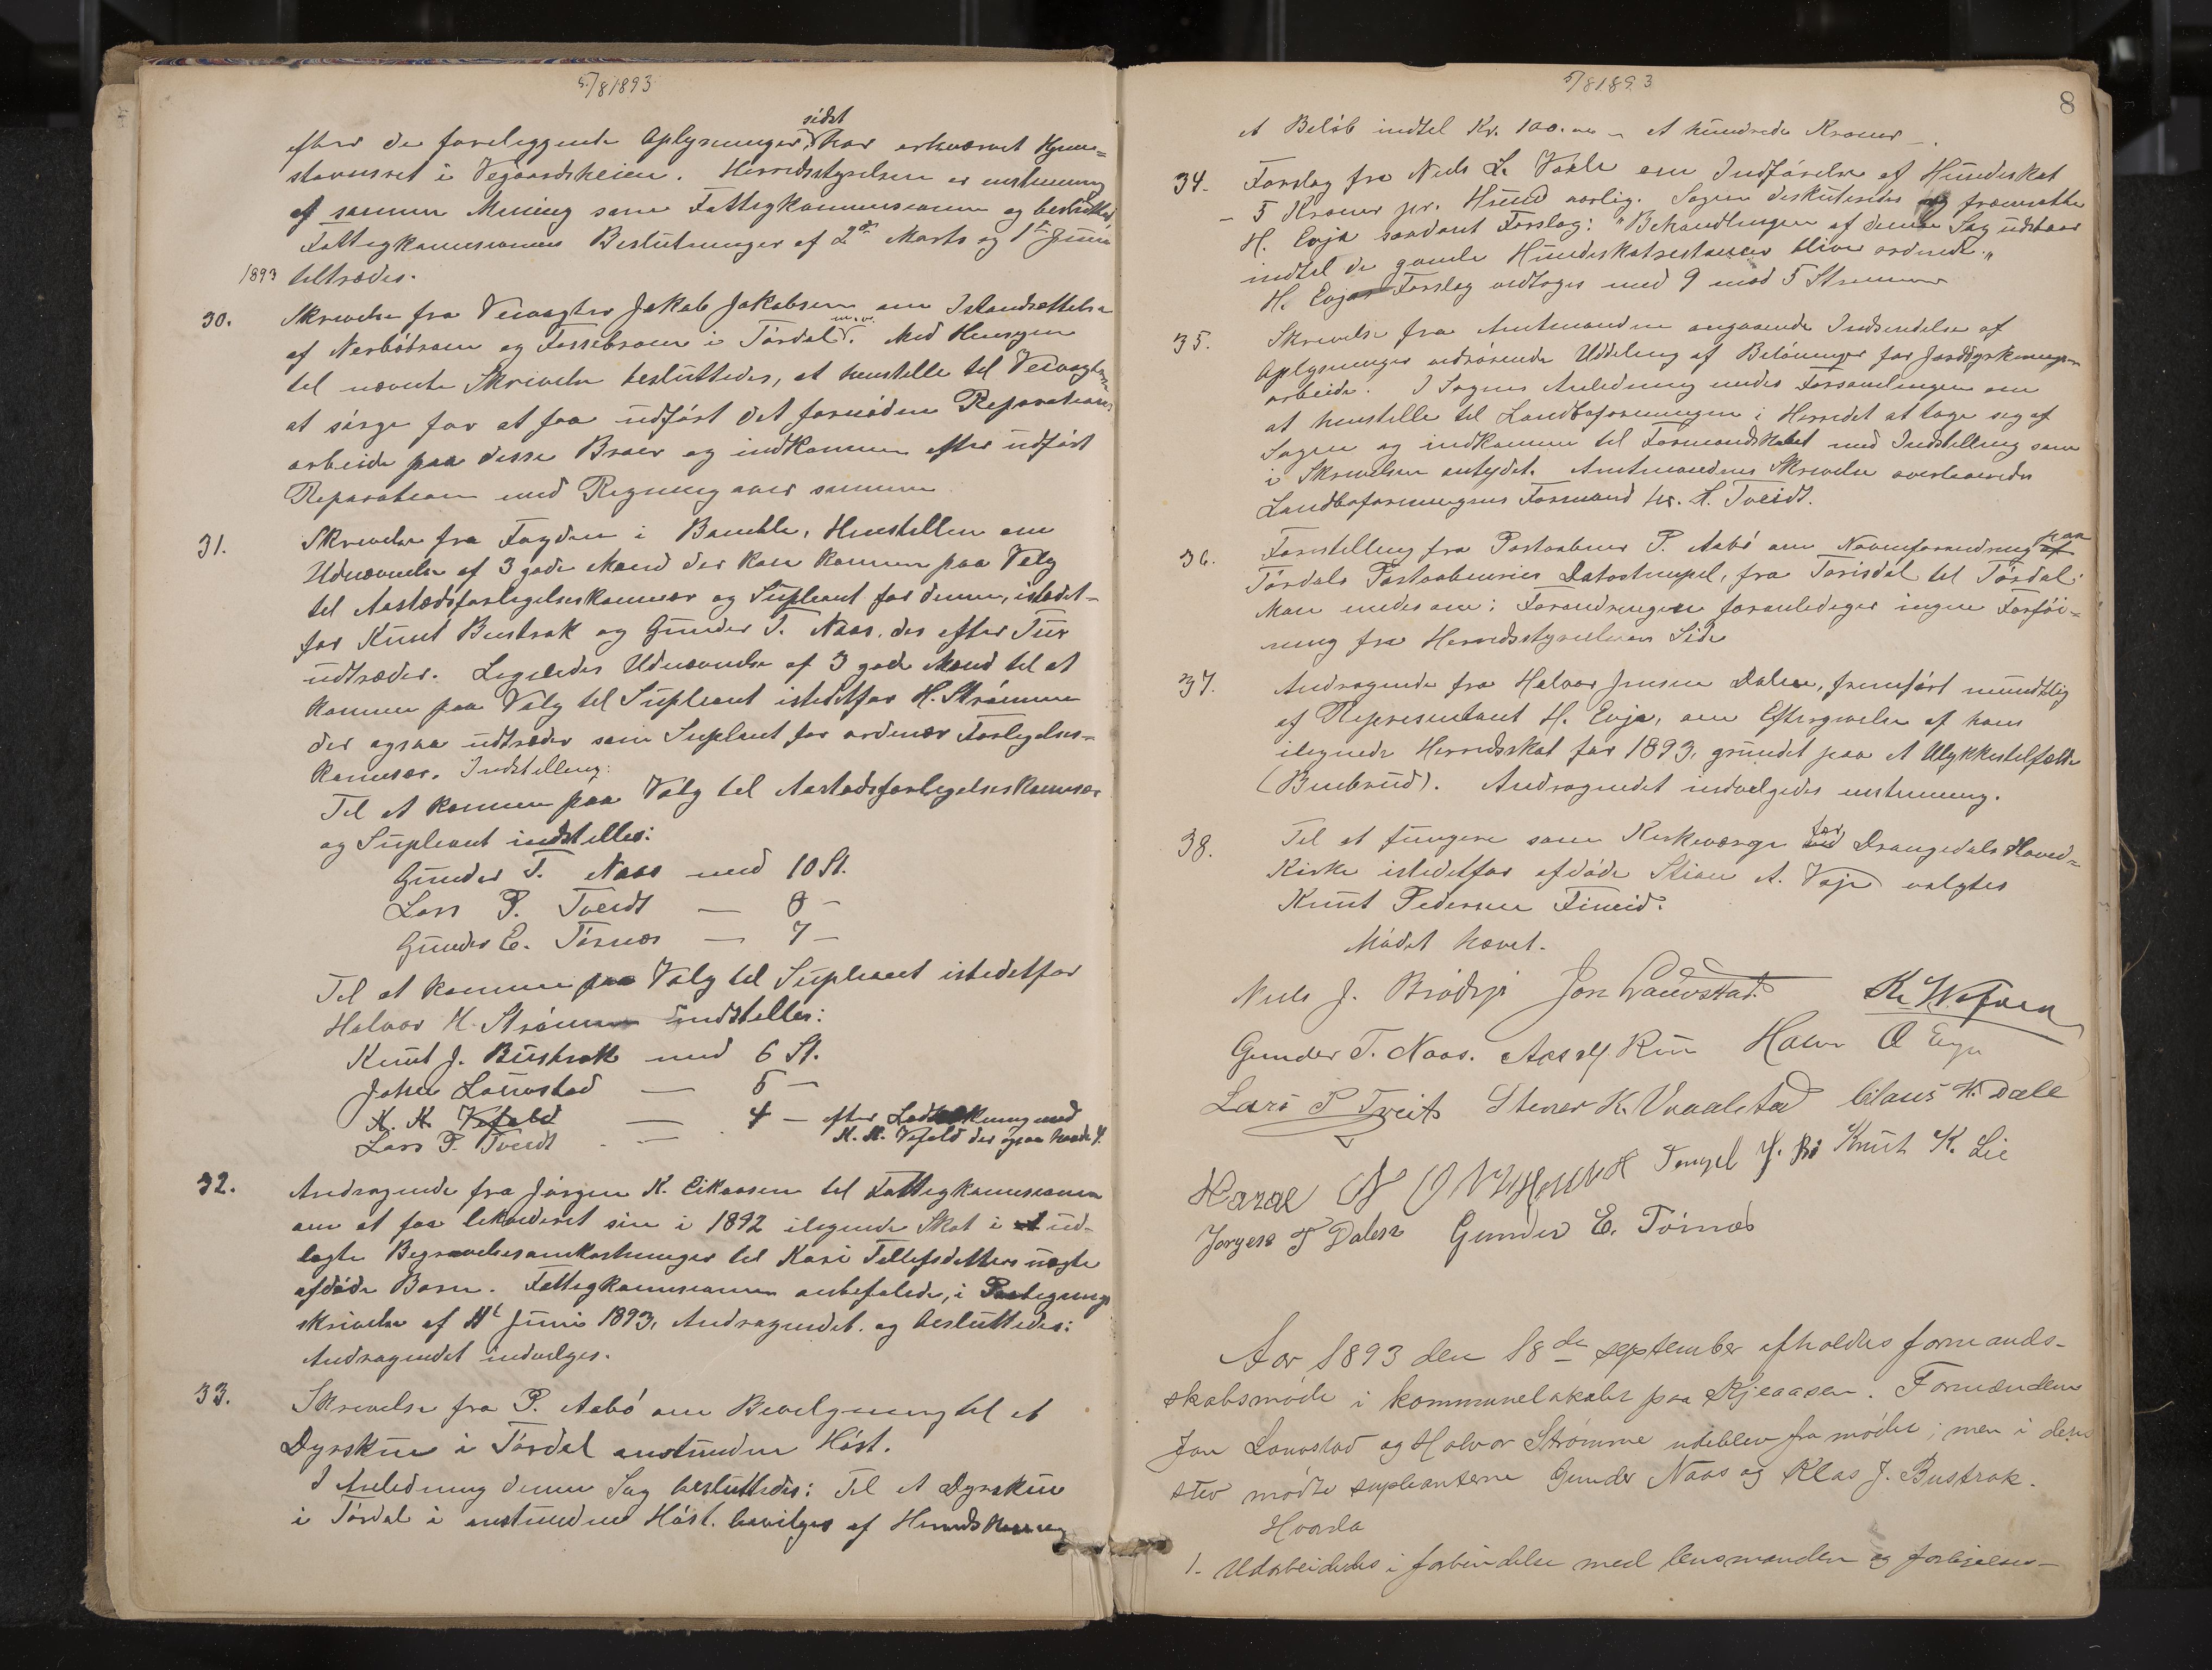 5/8 1893
sidst
efter de foreliggende Oplysninger, har erhværvet Hjem=
stavnsret i Vegaardsheien. Herredsstyrelsen er enstemmig
af samme Mening som Fattigkommissionen og besluttet
Fattigkomissionens Beslutninger af 2den Marts og 1ste Juni
1893 tiltrædes.
30. Skrivelse fra Veivogter Jakob Jakobsen om Istandsættelse
m.v.
af Nerbøbroen og Fossebroen i Tørdal. Med Hensyn
til nævnte Skrivelse besluttedes, at henstille til Veivogteren
at sørge for at faa udført det fornødne Reparations
arbeide paa disse Broer og indkomme efter udført
Reparation med Regning over samme
31. Skrivelse fra Fogden i Bamble, Henstillen om
Udnævnelse af 3 gode Mænd der kan komme paa Valg
til Aastedsforligelseskommisær og Supleant for denne, istedet-
for Knut Bustrak og Gunder T. Naas, der efter Tur
udtræder. Ligeledes Udnævnelse af 3 gode Mænd til at
komme paa Valg til Supleant istedetfor H. Strømme
der ogsaa udtræder som Supleant for ordinær Forligelses=
komisær. Indstilling:
Til at komme paa Valg til Aastedsforligelseskomisær
og Supleant indstilles:
Gunder T. Naas med 10 St.
Lars P. Tveidt — 8 —
Gunder E. Tørnes — 7 —
Til at komme paa Valg til Supleant istedetfor
Halvor H. Strømme indstilles:
Knut J. Bustrak med 6 St.
John Lauvstad — 5 —
K. K. Vefald
Lars P. Tveidt — 4 — efter Lodtrækning med
K. K. Vefald der ogsaa havde 4.
32. Andragende fra Jørgen K. Eikaasen til Fattigkomissionen
om at faa likvideret sin i 1892 ilignede Skat i ud-
lagte Begravelsesomkostninger til Kari Tellefsdatters uægte
afdøde Barn. Fattigkomissionen anbefalede, i
skrivelse af 11te Juni 1893, Andragendet og besluttedes:
Andragendet indvilges.
33. Skrivelse fra P. Aabø om Bevilgning til et
Dyrskue i Tørdal anstundende Høst.
I Anledning denne Sag besluttedes: Til et Dyrskue
i Tørdal i anstundende Høst bevilges af Herredskassen
5/8 1893
8
et Beløb indtil Kr. 100.00 – et hundrede Kroner –.
34. Forslag fra Niels L. Vaale om Indførelse af Hundeskat
– 5 Kroner pr. Hund aarlig. Sagen diskuteredes og fremsatte
H. Evja saadant Forslag: "Behandlingen af denne Sag udstaar
indtil de gamle Hundeskatrestancer bliver ordnede."
H. Evjas Forslag vedtoges med 9 mod 5 Stemmer
35. Skrivelse fra Amtmanden angaaende Indsendelse af
Oplysninger vedrørende Uddeling af Belønninger for Jorddyrknings-
arbeide. I Sagens Anledning enedes Forsamlingen om
at henstille til Landboforeningen i Herredet at tage sig af
Sagen og indkomme til Formandskabet med Indstilling som
i Skrivelsen antydet. Amtmandens Skrivelse overleveredes
Landboforeningens Formand hr. A. Tveidt.
36. Forestilling fra Postaabner P. Aabø om Navneforandring paa
Tørdals Postaabneries Datostempel, fra Torisdal til Tørdal.
Man enedes om: Forandringen foranlediger ingen Forføi=
ning fra Herredsstyrelsens Side
37. Andragende fra Halvor Jensen Dalen, fremført mundtlig
af Representant H. Evja, om Eftergivelse af hans
ilignede Herredsskat for 1893, grundet paa et Ulykkestilfælde
(Benbrud). Andragendet indvilgedes enstemmig.
38. Til at fungere som Kirkeværge for Drangedals Hoved=
Kirke istedetfor afdøde Stian A. Voje valgtes
Knut Pedersen Fineid.
Mødet hævet.
Niels J. Brødsjø Jon Lauvstad. K. K. Wefald
Gunder T. Naas. Aasulf Kiin Halvor O Evja
Lars P Tveit Stener K. Vraalstad Claus K. Dale
Haral Tengel J. Bø Knut K. Lie
Jørgen T Dalen Gunder E. Tørnes
Aar 1893 den 18de september afholdtes formands-
skabsmøde i kommunelokalet paa Kjeaasen. Formændene
Jon Lauvstad og Halvor Strømme udeblev fra mødet; men i deres
sted mødte suplianterne Gunder Naas og Klas J. Bustrak.
Hvorda
1. Udarbeidedes i forbindelse med lensmanden og forligelses-